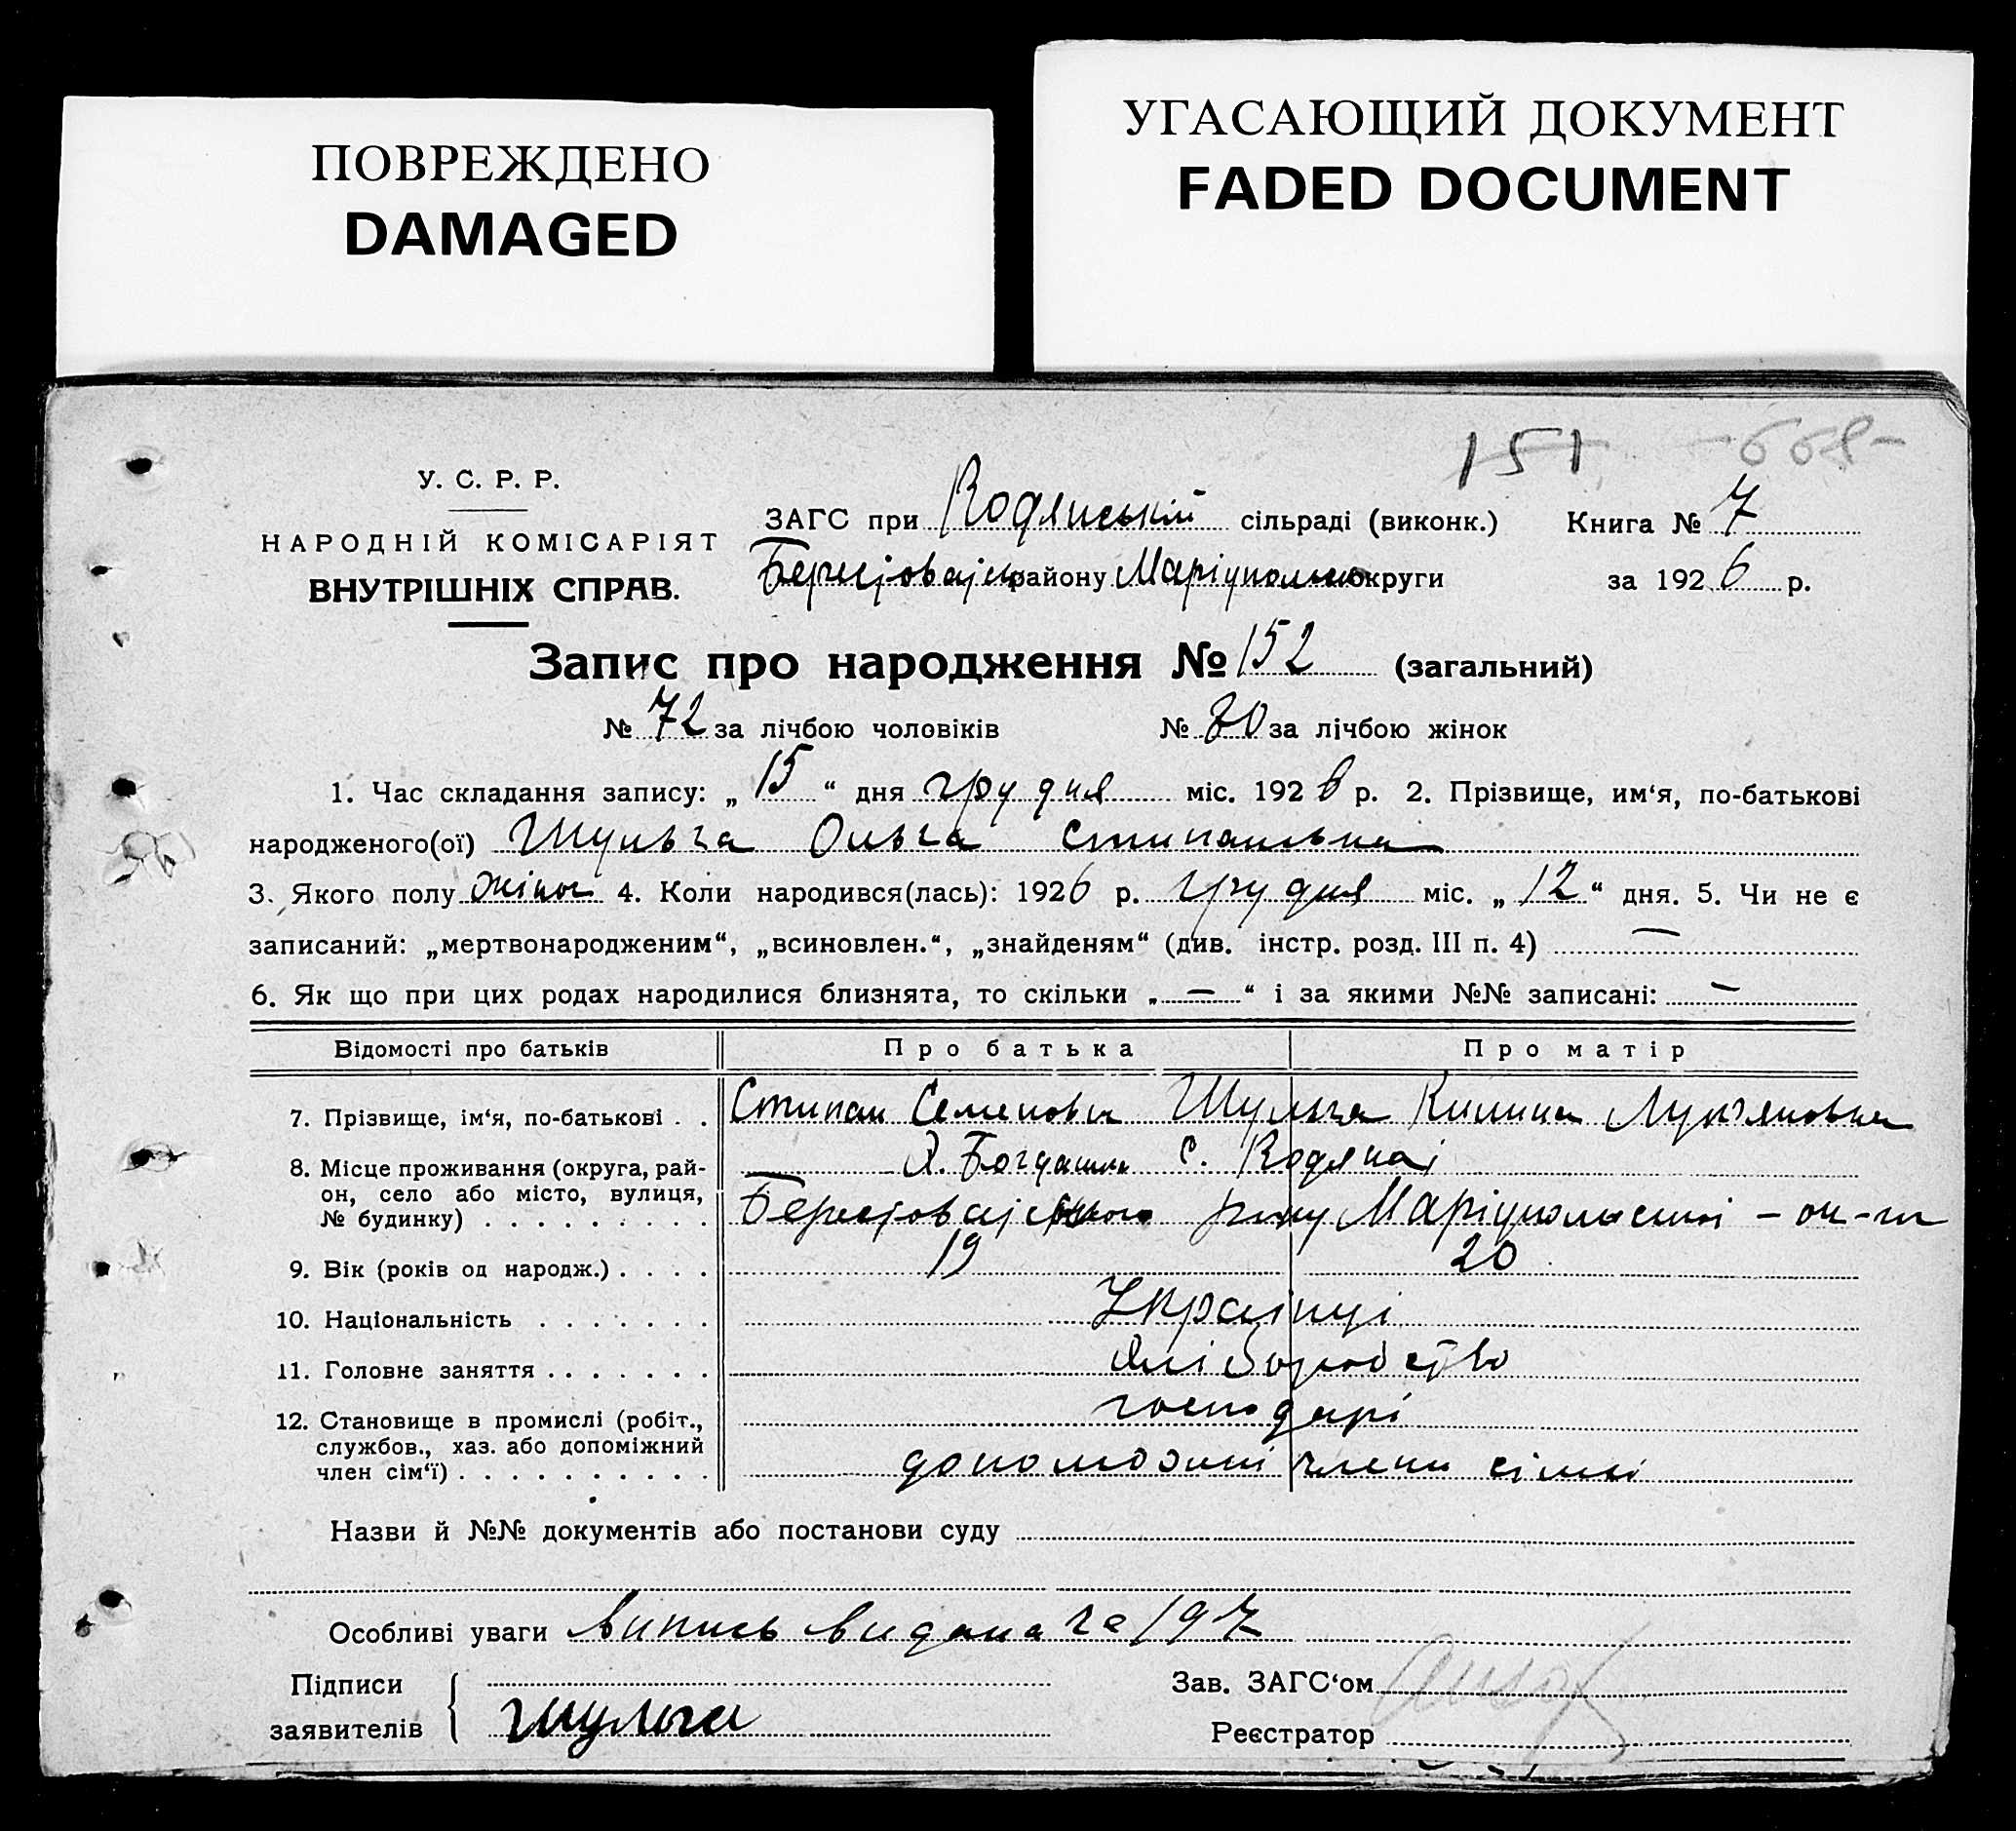 ПОВРЕЖДЕНО
DAMAGED
УГАСАЮЩИЙ ДОКУМЕНТ
FADED DOCUMENT
151 -668-
У. С. Р. Р.
НАРОДНІЙ КОМІСАРІЯТ
ВНУТРІШНІХ СПРАВ.
ЗАГС при Водянській сільраді (виконк.) Книга № 7
району округи за 1926 р.
Запис про народження № 152 (загальний)
№ 72 за лічбою чоловіків № 80 за лічбою жінок
1. Час складання запису: „15“ дня грудня міс. 1926 р. 2. Прізвище, им‘я, по-батькові
народженого(ої) Шульга Ольга Степановна
3. Якого полу жіноч 4. Коли народився(лась): 1926 р. грудня міс. „12“ дня. 5. Чи не є
записаний: „мертвонародженим“, „всиновлен.“, „знайденям“ (див. інстр. розд. III п. 4) —
6. Як що при цих родах народилися близнята, то скільки „—“ і за якими №№ записані: —
Відомості про батьків Про батька Про матір
7. Прізвище, ім‘я, по-батькові . . Степан Семенович Шульга Килина Лук‘яновна
8. Місце проживання (округа, рай-
он, село або місто, вулиця,
№ будинку) . . . . . . . . .
с. Водяної
Маріупольської - ок-ги
9. Вік (років од народж.) . . . . 19 20
10. Національність . . . . . . . Українці
11. Головне заняття . . . . . . . Хліборобство
12. Становище в промислі (робіт.,
службов., хаз. або допоміжний
член сім‘ї) . . . . . . . . . .
господарі
допоможні члени сімьї
Назви й №№ документів або постанови суду
Особливі уваги Випись видана за 197
Підписи
заявителів
Шульга
Зав. ЗАГС‘ом
Реєстратор